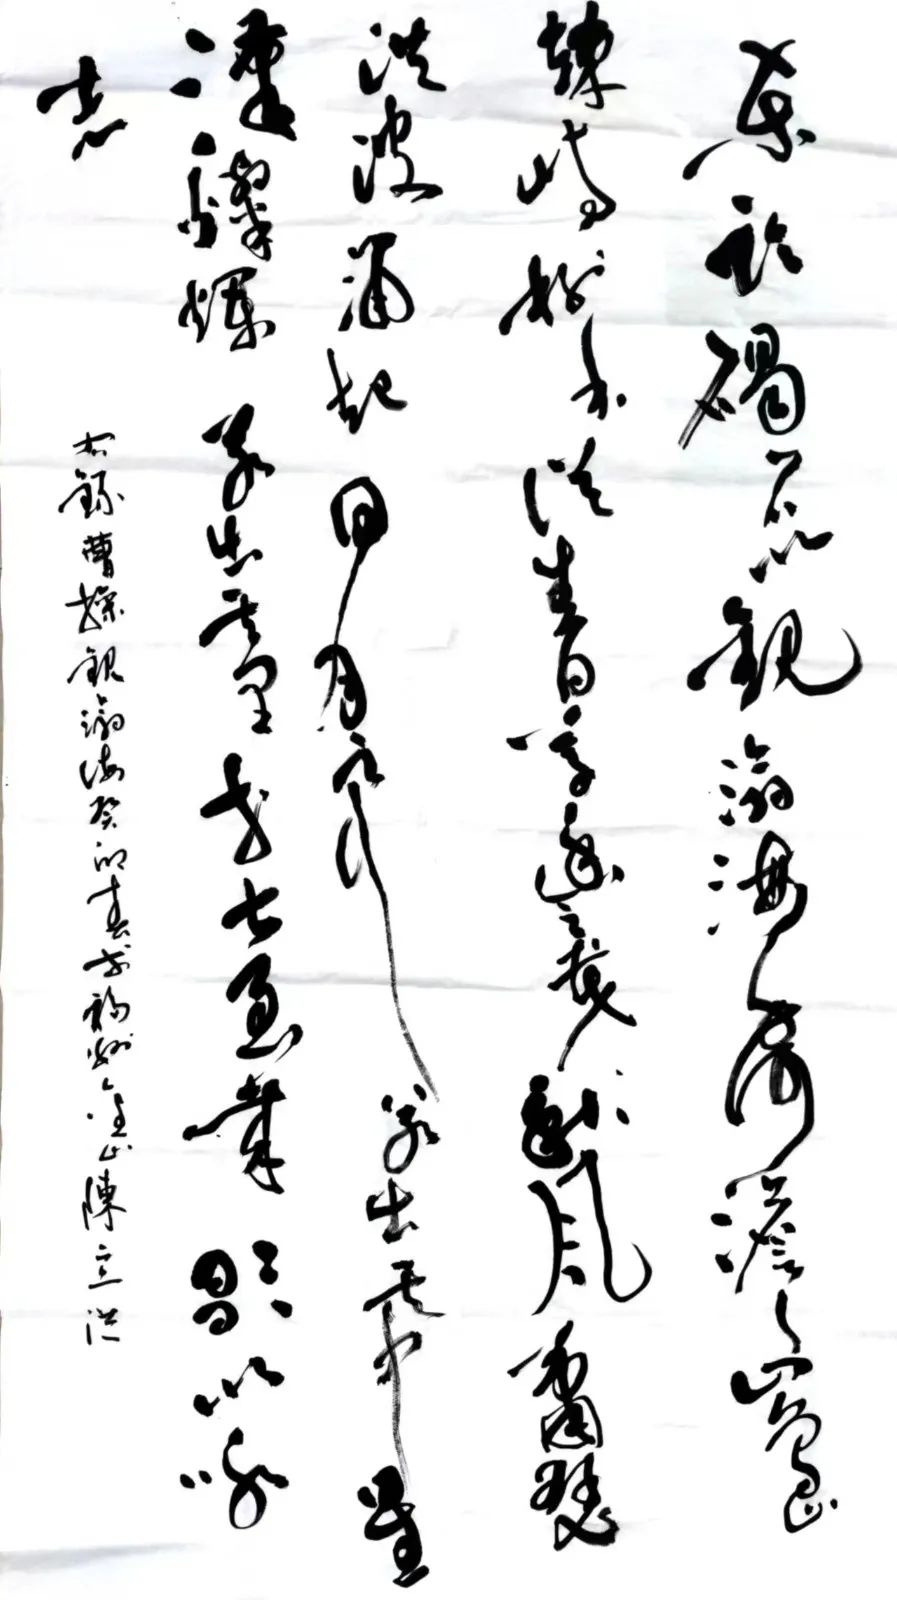 東臨碣石以觀滄海水何澹〻山島
竦峙樹木叢生百草豐茂秋風蕭瑟
洪波湧起日月之行若出其中星
漢燦爛若出其里幸甚至哉歌以詠
志
右錄曹操觀滄海癸卯春書福州金山陳立洪